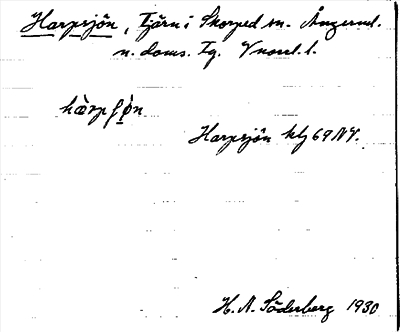 Harpsjön, Tjärn i Skorped sn. Ångerml.
n. doms. Tg. Vnorrl. l.
hàrpʃø̀n
Harpsjön ktg 69 NV.
H. A. Söderberg 1930